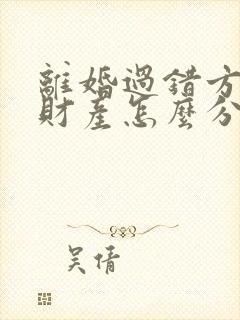 離婚過錯方
財產怎麼分
吴倩